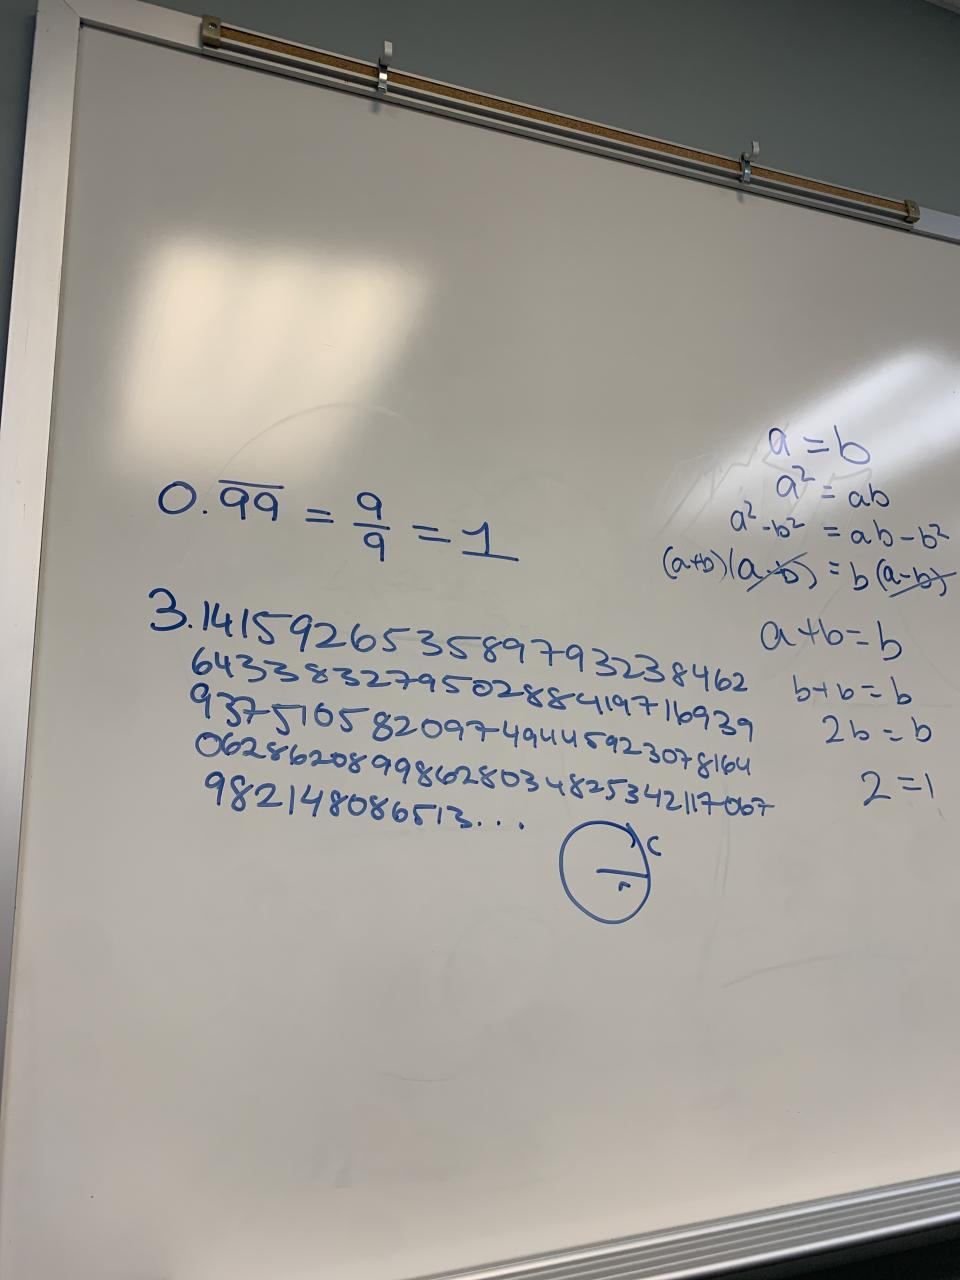 0.9̅9̅ = 9/9 = 1
3.141592653589793238462
64338327950288419716939
93751058209749445923078164
06286208998628034825342117067
982148086513...
C
r
a = b
a² = ab
a² - b² = ab - b²
(a+b)(a-b) = b(a-b)
a+b=b
b+b=b
2b=b
2=1